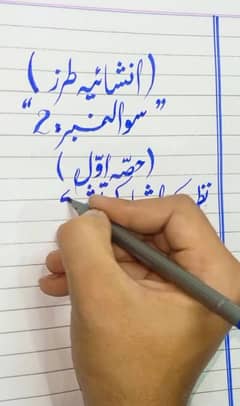 (انشائیہ طرز)
"سوالنمبر:2"
(حصّہ اوّل)
نظم کے اشعار کی تشریح